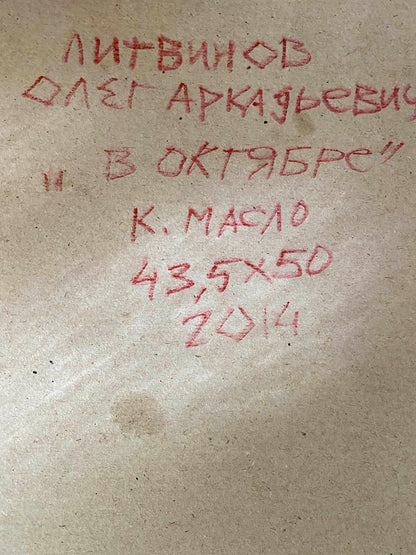 ЛИТВИНОВ
ОЛЕГ АРКАДЬЕВИЧ
„ В ОКТЯБРЕ”
К. МАСЛО
43,5х50
2014